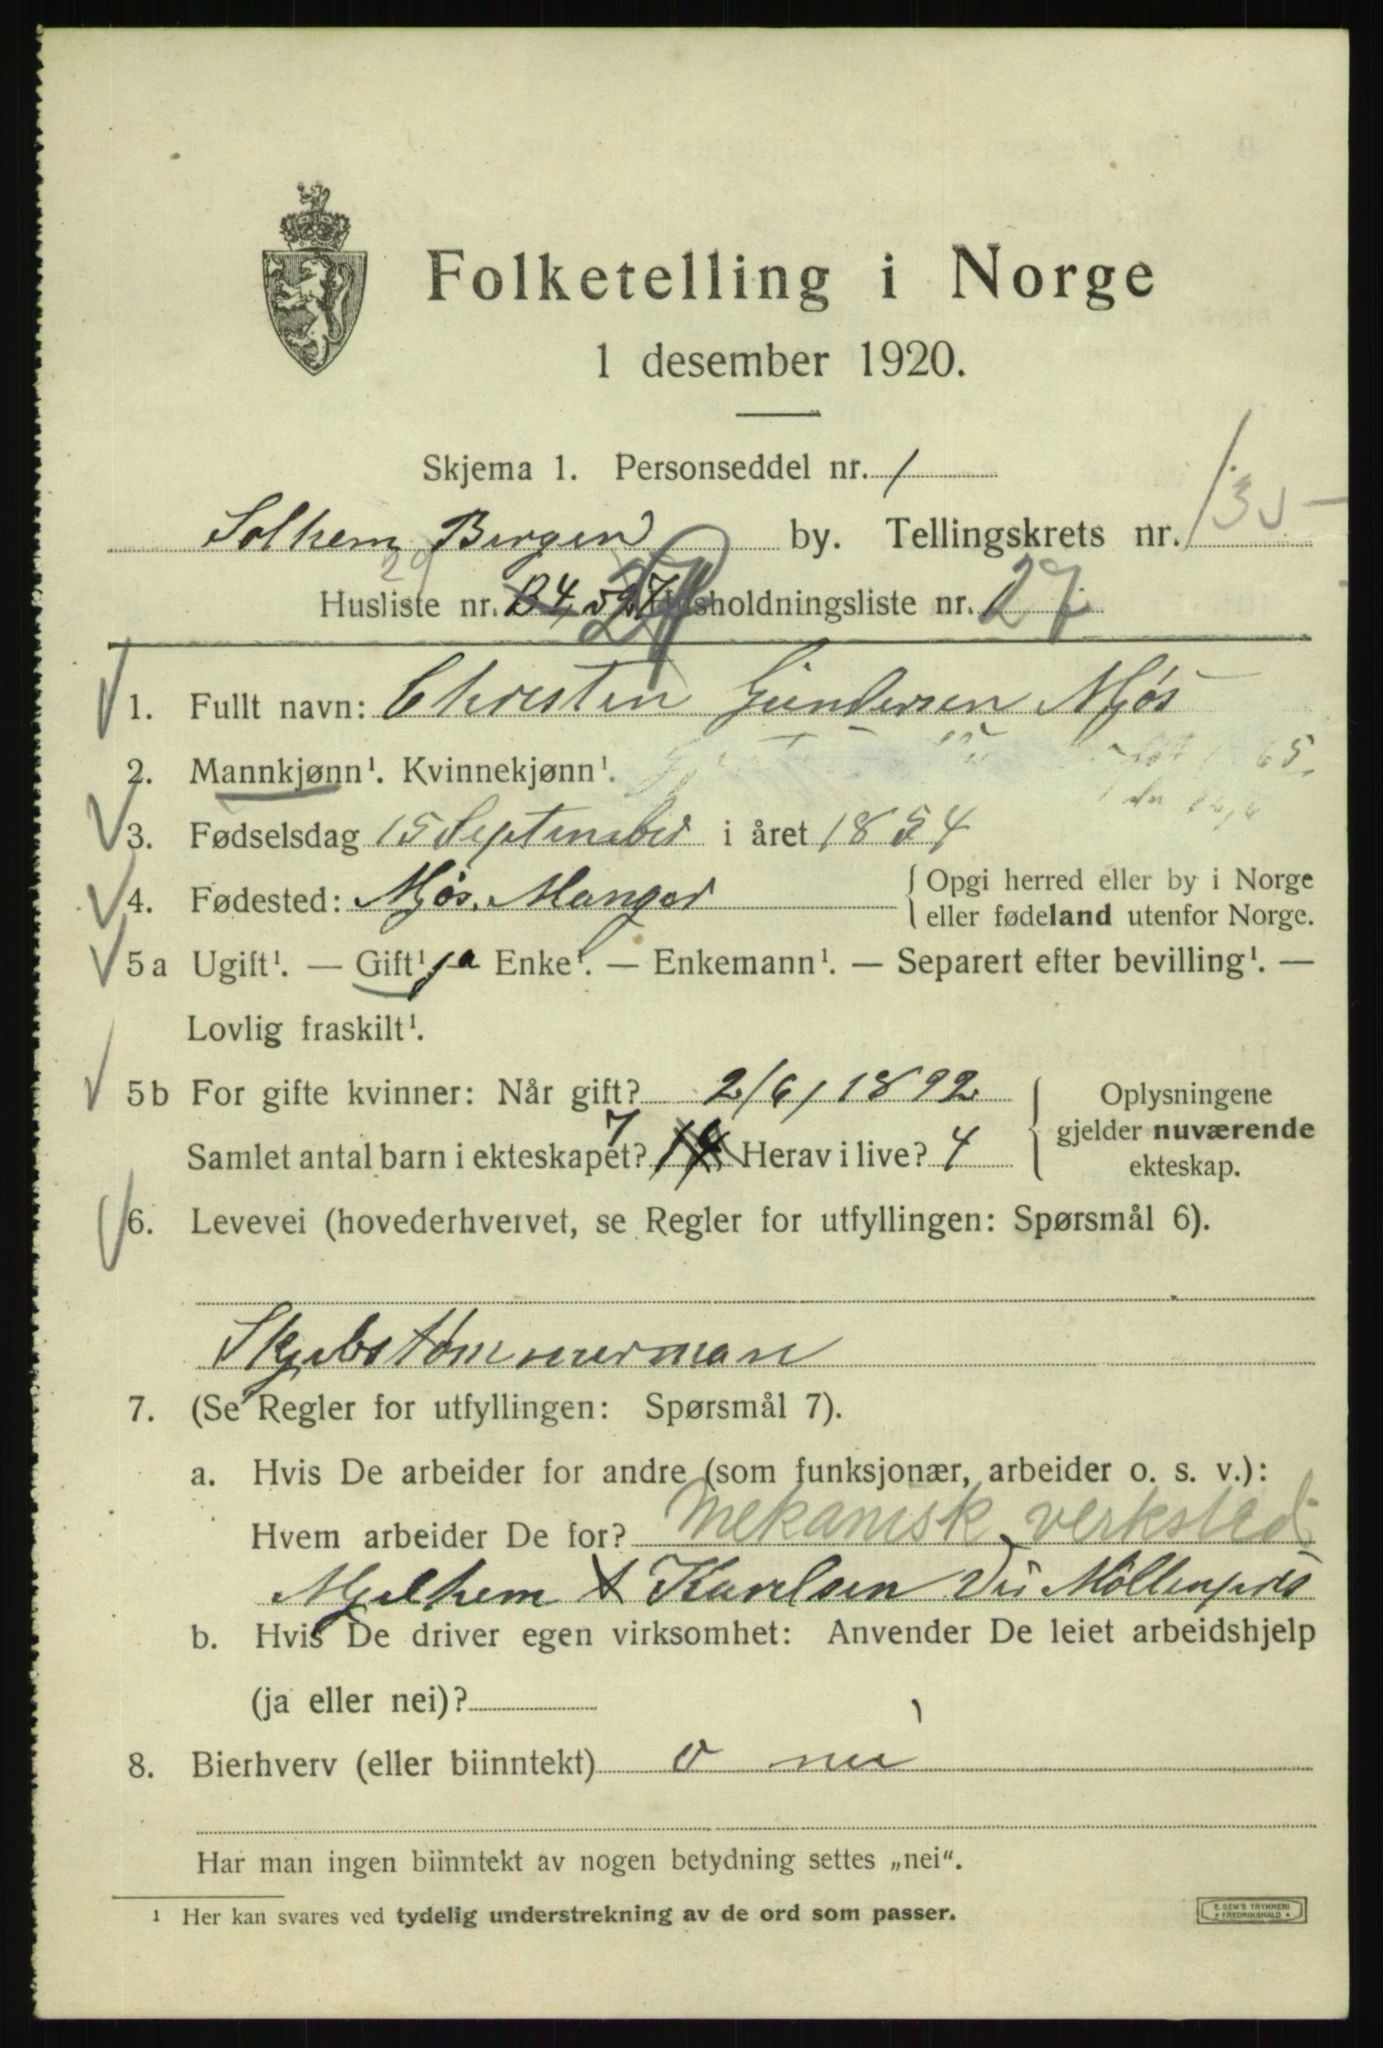 Folketelling i Norge
1 desember 1920.
Skjema 1. Personseddel nr. 1
Solhem Bergen by. Tellingskrets nr. 135
29
Husliste nr. B4 Husholdningsliste nr. 27
1. Fullt navn: Christen Gundersen Mjøs
2. Mannkjønn¹. Kvinnekjønn¹.
3. Fødselsdag 15 September i året 1854
4. Fødested: Mjøs. Manger { Opgi herred eller by i Norge
eller fødeland utenfor Norge.
5a Ugift¹. — Gift¹ ja Enke¹. — Enkemann¹. — Separert efter bevilling¹. —
Lovlig fraskilt¹.
5b For gifte kvinner: Når gift? 2/6, 1892 { Oplysningene
gjelder nuværende
ekteskap.
Samlet antal barn i ekteskapet? 7 Herav i live? 4
6. Levevei (hovederhvervet, se Regler for utfyllingen: Spørsmål 6).
Skjibstømmerman
7. (Se Regler for utfyllingen: Spørsmål 7).
a. Hvis De arbeider for andre (som funksjonær, arbeider o. s. v.):
Hvem arbeider De for? Mekanisk verksted
Mjelhem & Karlsen Møllenpris
b. Hvis De driver egen virksomhet: Anvender De leiet arbeidshjelp
(ja eller nei)?
8. Bierhverv (eller biinntekt) o nei
Har man ingen biinntekt av nogen betydning settes „nei“.
¹ Her kan svares ved tydelig understrekning av de ord som passer.
E. SEM'S TRYKKERI
FREDRIKSHALD